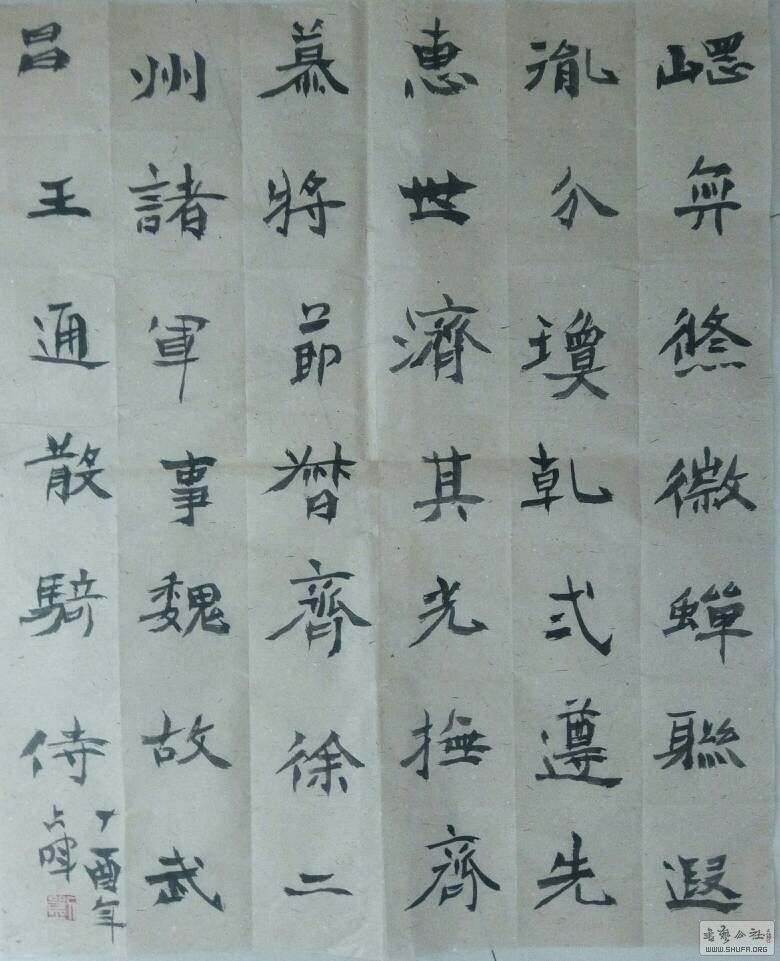 無悠微蟬聯遐
胤分瓊乾弍遵先
惠世濟其光撫齊
慕將節督齊徐二
州諸軍事魏故武
昌王通散騎侍
丁酉年
占晖
WWW.SHUFA.ORG